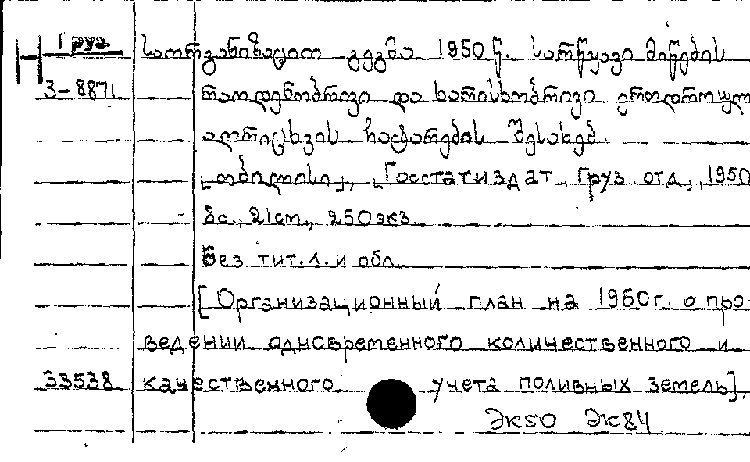 Груз.
საორგანიზაციო გეგმა 1950 წ. სარწყავი მიწების
3-8871
რაოდენობრივი და ხარისხობრივი ერთდროულ
აღრიცხვის ჩატარების შესახებ.
[თბილისი], [Госстатиздат, Груз. отд., 1950
8с., 21см., 250экз.
Без тит. л. и обл.
[Организационный план на 1950г. о про-
ведении одновременного количественного и
33538 качественного учета поливных земель].
ЭК50 ЭК84